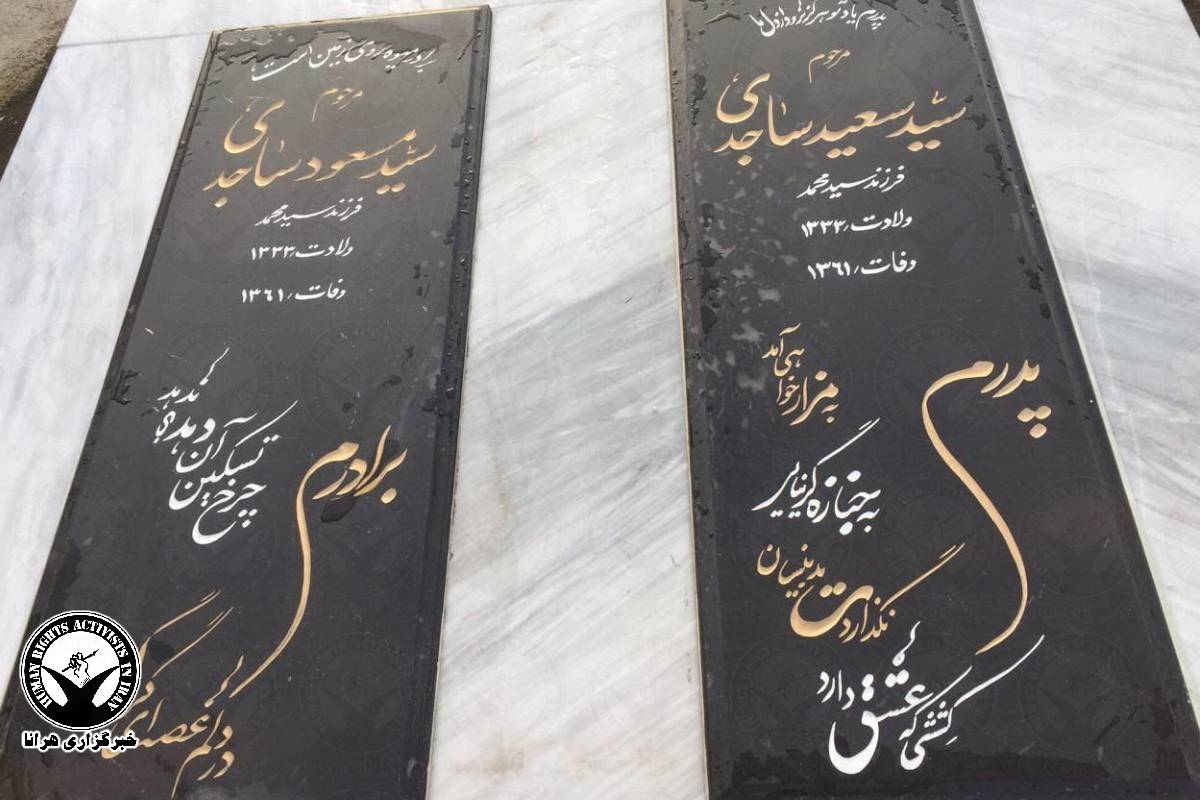 پدرم یاد تو هرگز نرود از دل ما
مرحوم
سید سعید ساجدی
فرزند سید محمد
ولادت: ۱۳۳۳
وفات: ۱۳۶۱
پدرم
کششی که عشق دارد
نگذاردت بدینسان
به جنازه گر نیایی
به مزار خواهی آمد
روی زمین است
مرحوم
سید مسعود ساجدی
فرزند سید محمد
ولادت: ۱۳۳۳
وفات: ۱۳۶۱
برادرم
چرخ
تسکین
آن دهد
ندهد
در دلم غصه‌ای
HUMAN RIGHTS ACTIVISTS IN IRAN
خبرگزاری هرانا